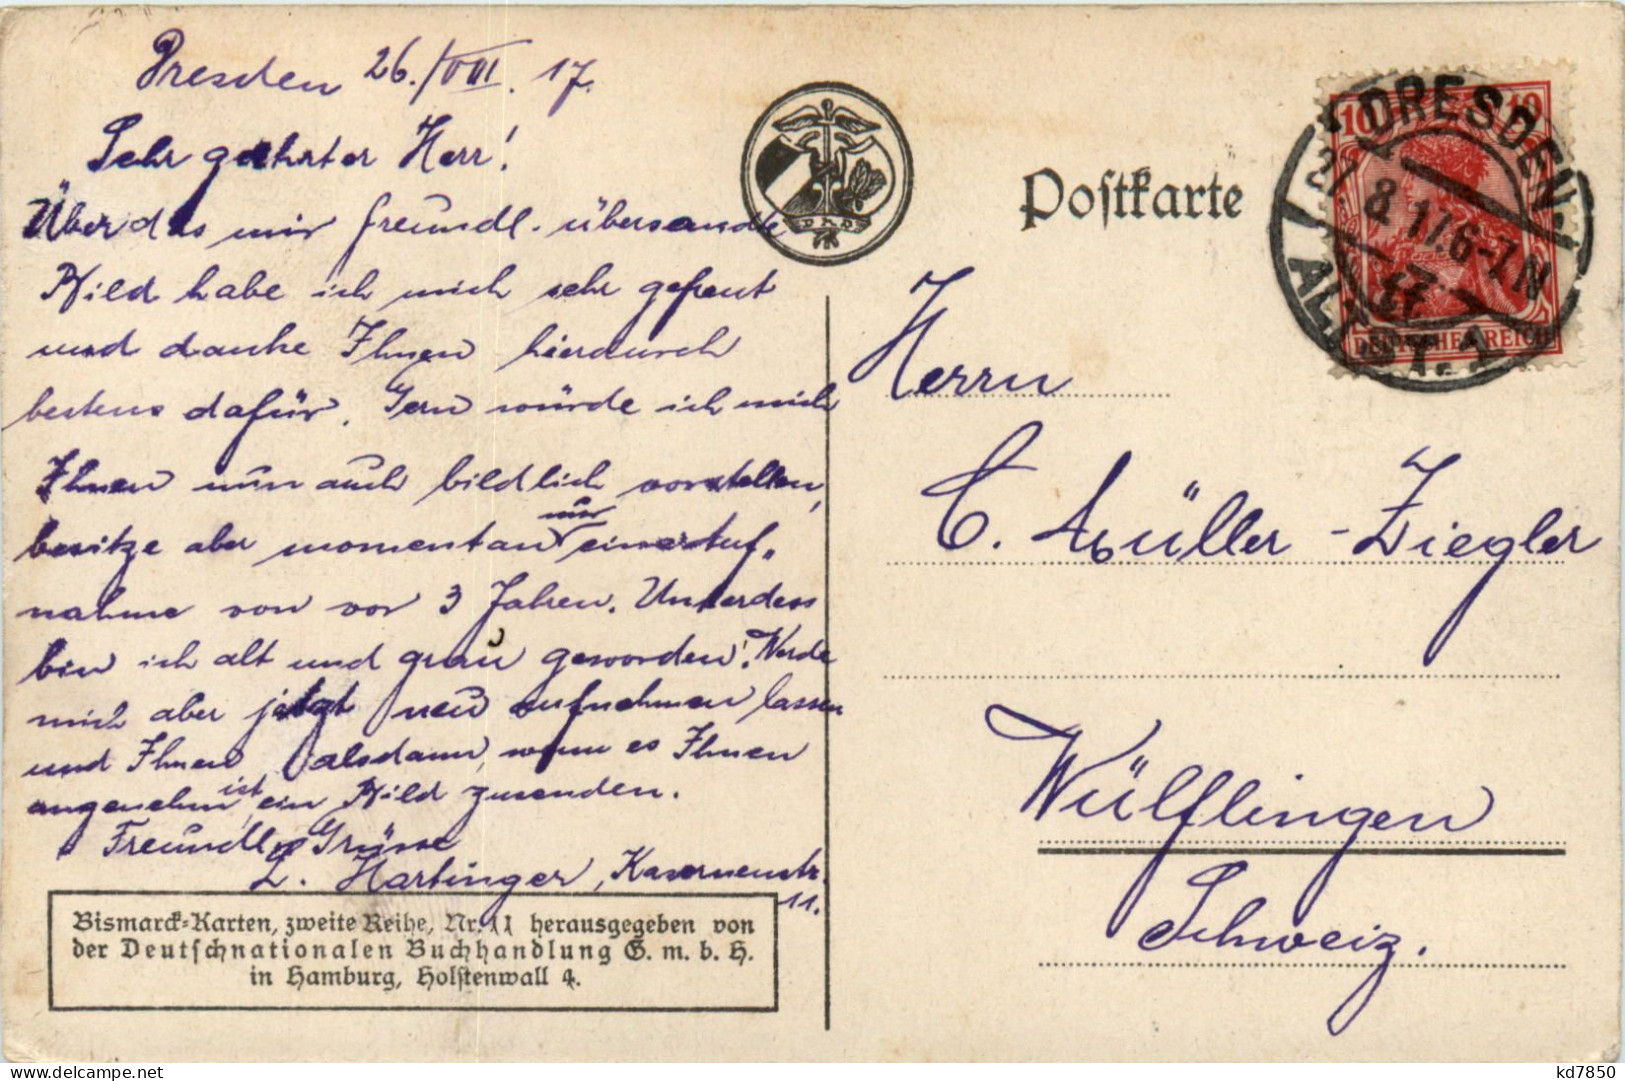 Dresden 26./VIII. 17.
Sehr geehrter Herr!
Über das mir freundl. übersandte
Bild habe ich mich sehr gefreut
und danke Ihnen hierdurch
bestens dafür. Gern würde ich mich
Ihnen nun auch bildlich vorstellen,
besitze aber momentan nur eine Auf-
nahme von vor 3 Jahren. Unterdess
bin ich alt und grau geworden! Werde
mich aber jetzt neu aufnehmen lassen
und Ihnen alsdann, wenn es Ihnen
angenehm ist, ein Bild zusenden.
Freundl. Grüsse
L. Hartinger, Kasernenstr.
11.
Bismarck-Karten, zweite Reihe, Nr. 11 herausgegeben von
der Deutschnationalen Buchhandlung G. m. b. H.
in Hamburg, Holstenwall 4.
D H D
Postkarte
10 10
DEUTSCHES REICH
DRESDEN-
27. 8. 17. 6-7 N
ALTST. 1
Herrn
C. Müller-Ziegler
Wülflingen
Schweiz.
kd7850